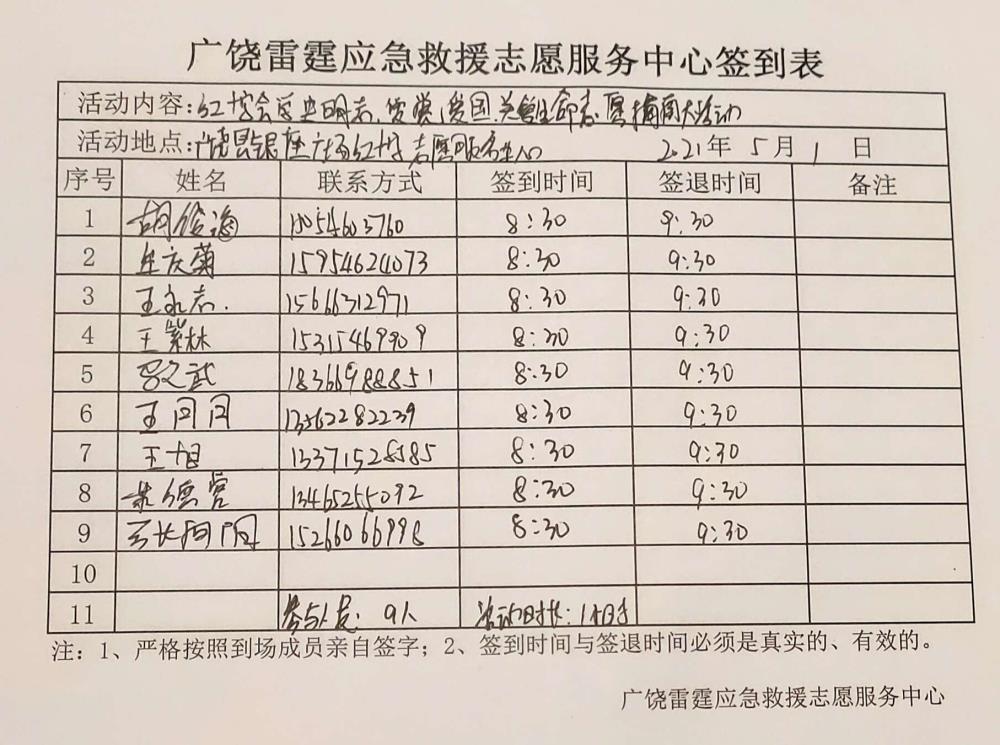 广饶雷霆应急救援志愿服务中心签到表
活动内容:红十字会学史明志、爱党、爱国、关爱生命志愿捐献大活动
活动地点:广饶县银座广场红十字志愿服务 2021年5月1日
序号 姓名 联系方式 签到时间 签退时间 备注
1 胡俊海 8:30 9:30
2 庆菊 15954624073 8:30 9:30
3 王永志. 15666312971 8:30 9:30
4 王紫林 15315469909 8:30 9:30
5 文武 18366988851 8:30 9:30
6 王月月 13562282239 8:30 9:30
7 王旭 13371528585 8:30 9:30
8 德营 13465255092 8:30 9:30
9 15266066998 8:30 9:30
10
11 参与人员:9人 活动时长:1小时
注:1、严格按照到场成员亲自签字;2、签到时间与签退时间必须是真实的、有效的。
广饶雷霆应急救援志愿服务中心